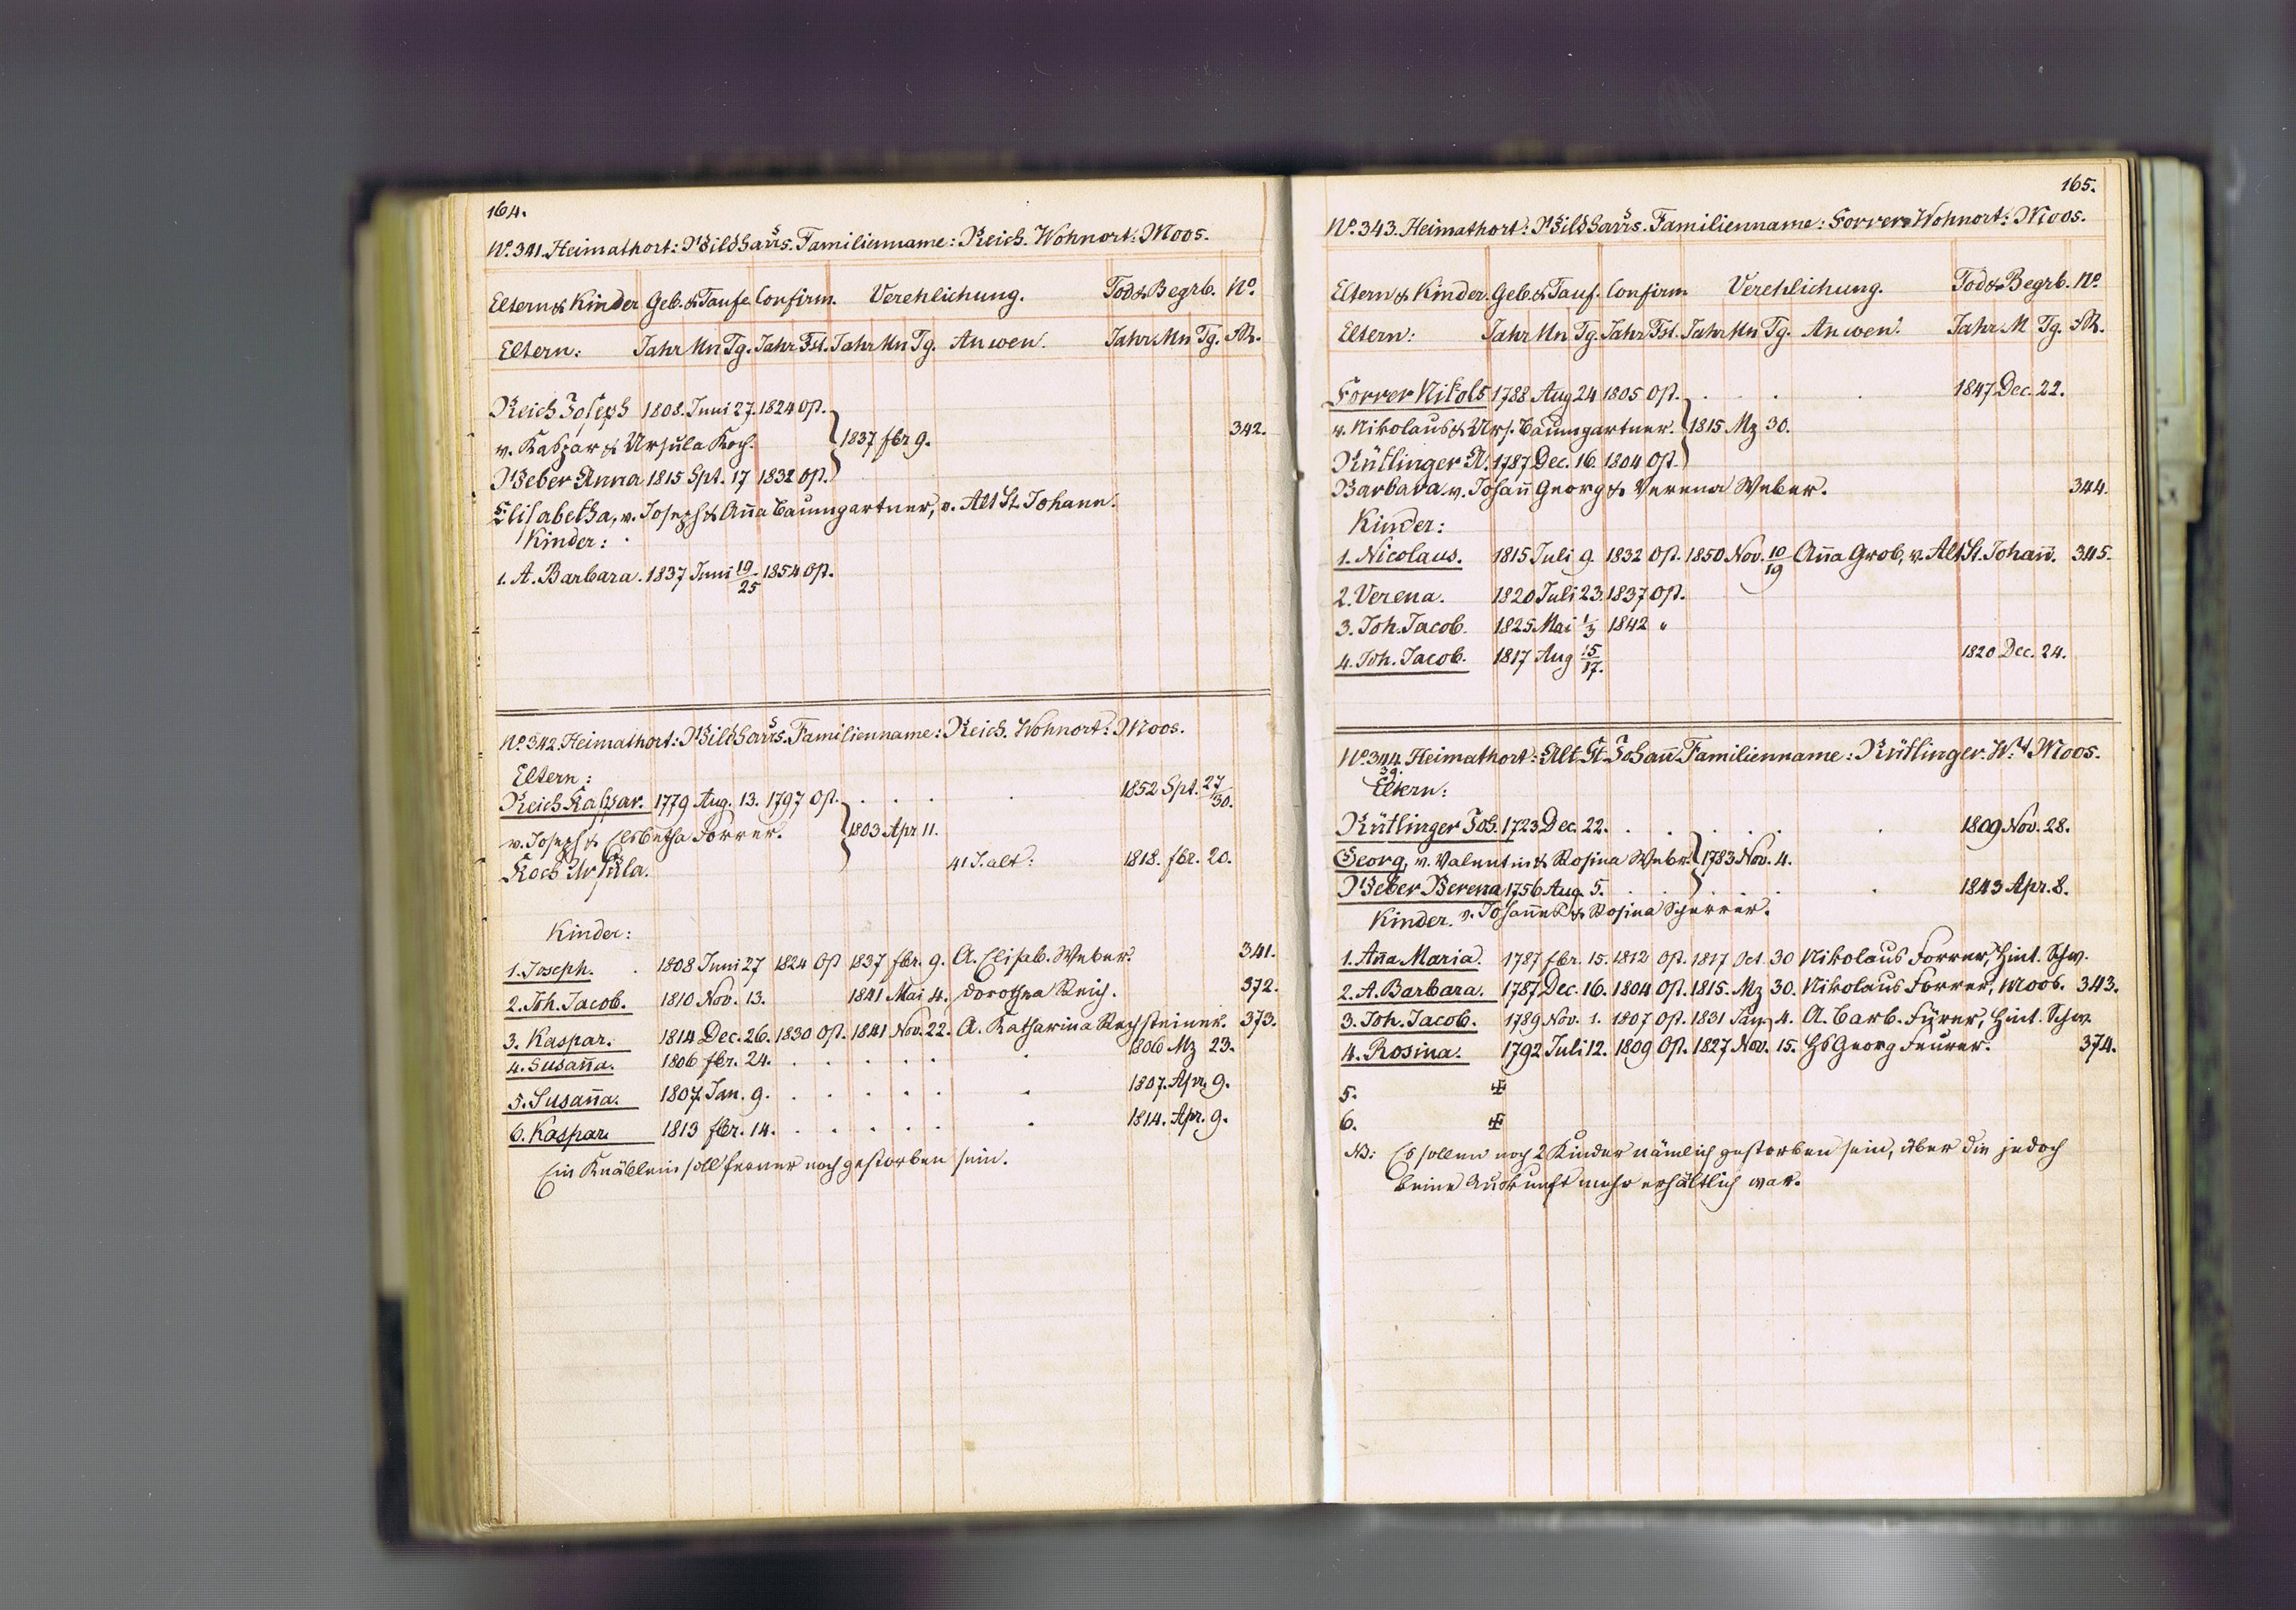 164.
No. 341. Heimathort: Wildhaus. Familienname: Reich. Wohnort: Moos.
Eltern & Kinder Geb. & Taufe Confirm. Verehlichung. Tod & Begrb. No.
Eltern: Jahr Mn Tg. Jahr Fst. Jahr Mn Tg. Anwen. Jahr Mn Tg. R.
Reich Joseph 1808. Juni 27. 1824 Op.
v. Kaspar & Ursula Koch. 1837 fbr 9. 342.
Weber Anna 1815 Spt. 17 1832 Op.
Elisabetha, v. Joseph & Ana Baumgartner, v. Alt St. Johann.
Kinder:
1. A. Barbara. 1837 Juni 19/25 1854 Op.
No. 342. Heimathort: Wildhaus. Familienname: Reich. Wohnort: Moos.
Eltern:
Reich Kaspar. 1779 Aug. 13. 1797 Op. . . . . 1852 Spt. 27/30.
v. Joseph & Elsbetha Forrer. 1803 Apr 11.
Koch Ursula. 41 J. alt: 1818. fbr. 20.
Kinder:
1. Joseph. . 1808 Juni 27 1824 Op 1837 fbr. 9. A. Elisab. Weber. 341.
2. Joh. Jacob. 1810 Nov. 13. 1841 Mai 4. Dorothea Reich. 372.
3. Kaspar. 1814 Dec. 26. 1830 Op. 1841 Nov. 22. A. Katharina Rechsteiner. 373.
4. Susana. 1806 fbr. 24. . . . . . . 1806 Mz 23.
5. Susana. 1807. Jan. 9. . . . . . . 1807. Apr. 9.
6. Kaspar. 1813 fbr. 14. . . . . . . 1814. Apr. 9.
Ein Knäblein soll ferner noch gestorben sein.
165.
No. 343. Heimathort: Wildhaus. Familienname: Forrer Wohnort: Moos.
Eltern & Kinder. Geb. & Tauf. Confirm Verehlichung. Tod & Begrb. No
Eltern: Jahr Mn Tg. Jahr Fst. Jahr Mn Tg. Anwen. Jahr M Tg. R.
Forrer Nikols 1788 Aug 24 1805 Op. . . . 1847 Dec. 22.
v. Nikolaus & Urs. Baumgartner. 1815 Mz 30.
Rütlinger A. 1787 Dec. 16. 1804 Op.
Barbara v. Johan̄ Georg & Verena Weber. 344.
Kinder:
1. Nicolaus. 1815 Juli 9. 1832 Op. 1850 Nov. 10/19 An̄a Grob, v. Alt St. Johan̄. 345.
2. Verena. 1820 Juli 23. 1837 Op.
3. Joh. Jacob. 1825 Mai 1/3 1842 "
4. Joh. Jacob. 1817 Aug 15/17. 1820 Dec. 24.
No. 344. Heimathort: Alt St. Johan̄ Familienname: Rütlinger. W.t Moos.
Eltern:
Rütlinger Joh. 1723 Dec. 22. . . . . . 1809 Nov. 28.
Georg, v. Valentin & Rosina Weber. 1783 Nov. 4.
Weber Verena 1756 Aug. 5. . . . . . 1843 Apr. 8.
Kinder. v. Johannes & Rosina Scherrer.
1. An̄a Maria. 1787 fbr. 15. 1812 Op. 1817 Oct. 30 Nikolaus Forrer, Hint. Schw.
2. A. Barbara. 1787 Dec. 16. 1804 Op. 1815. Mz 30. Nikolaus Forrer, Moos. 343.
3. Joh. Jacob. 1789 Nov. 1. 1807 Op. 1831 Jan. 4. A. Barb. Fürer, Hint. Schw.
4. Rosina. 1792 Juli 12. 1809 Op. 1827 Nov. 15. Hs Georg Feurer. 374.
5. ✠
6. ✠
NB: Es sollen noch 2 Kinder nämlich gestorben sein, über die jedoch
keine Auskunft mehr erhältlich war.